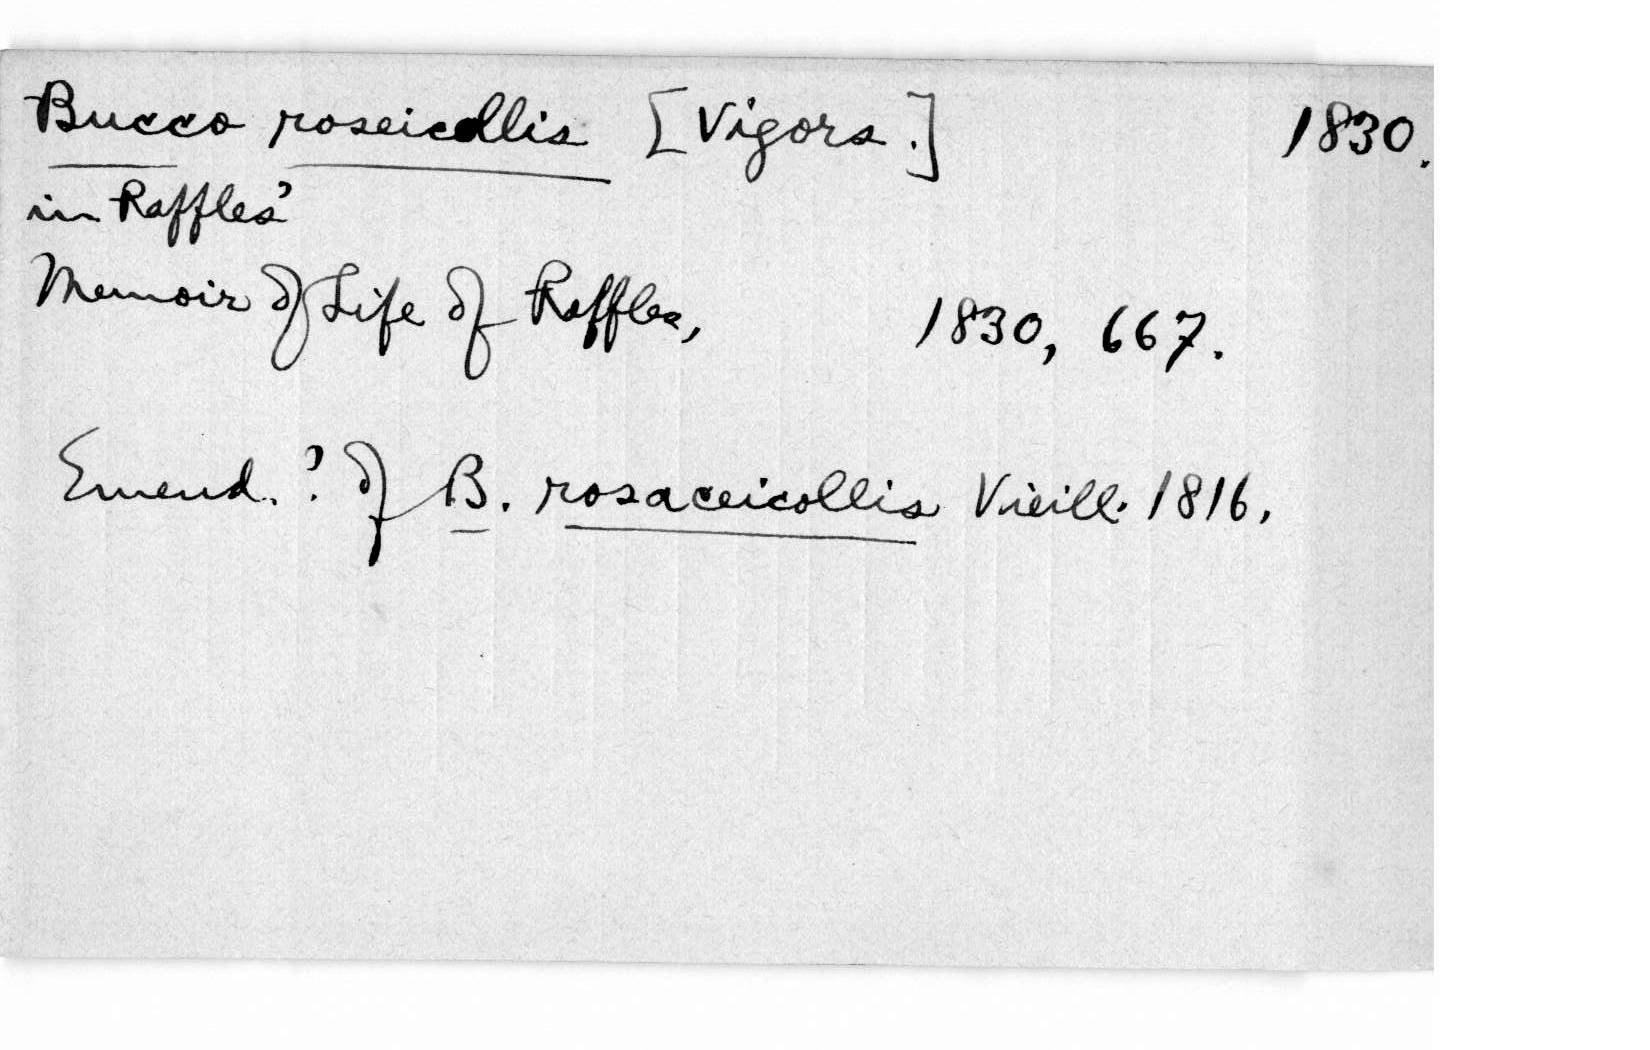 Bucco roseicollis [Vigors.] 1830.
in Raffles'
Memoir of Life of Raffles, 1830, 667.
Emend.? of B. rosaceicollis Vieill. 1816.